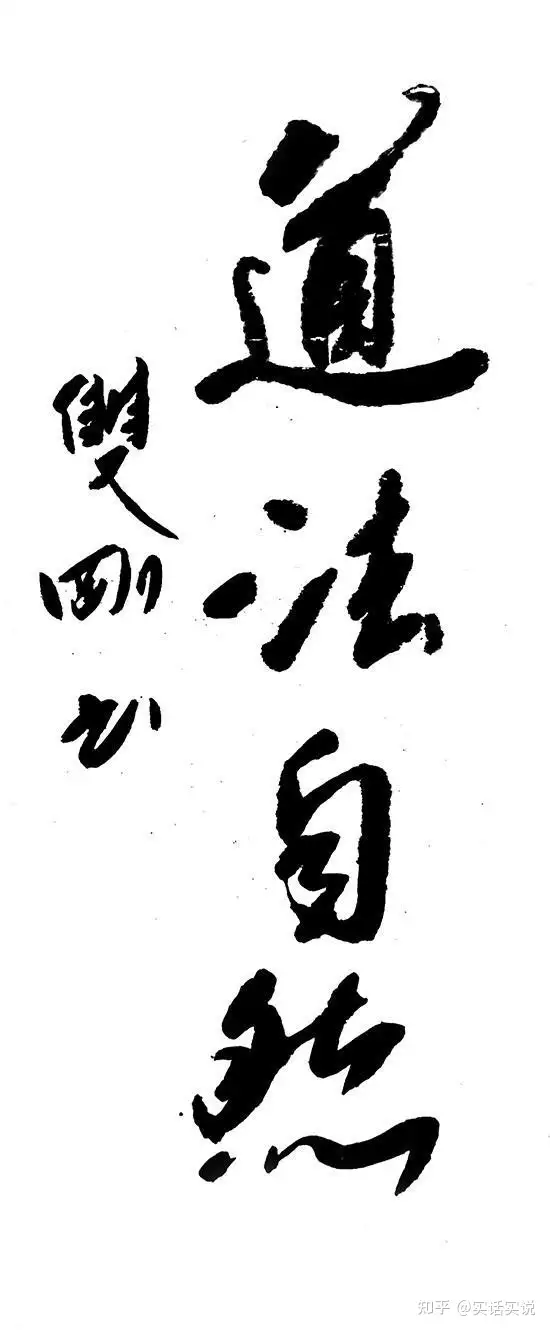 道法自然
雙剛书
知乎 @实话实说